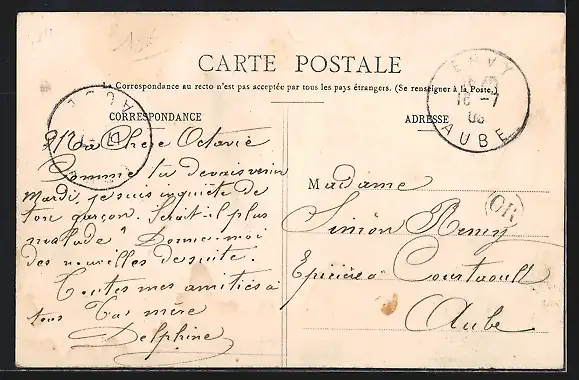 CARTE POSTALE
La Correspondance au recto n'est pas acceptée par tous les pays étrangers. (Se renseigner à la Poste.)
CORRESPONDANCE
Ma Chère Octavie
Comme tu devais venir
Mardi, je suis inquiète de
ton garçon. Serait-il plus
malade? Donne-moi
des nouvelles de suite.
Toutes mes amitiés à
tous Ta mère
Delphine
ADRESSE
ERVY
16 -1
AUBE
OR
Madame
Simon Remy
Epicière à Courtaoult
Aube